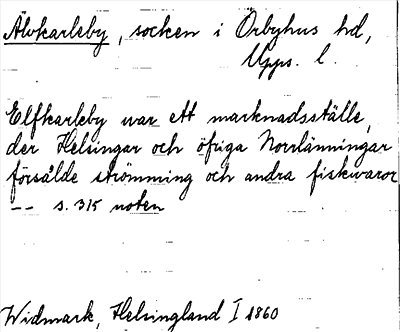 Älvkarleby, socken i Örbyhus hd,
Upps. l.
Elfkarleby var ett marknadsställe,
der Helsingar och öfriga Norrlänningar
försålde strömming och andra fiskvaror
-- s. 315 noten
Widmark, Helsingland I 1860